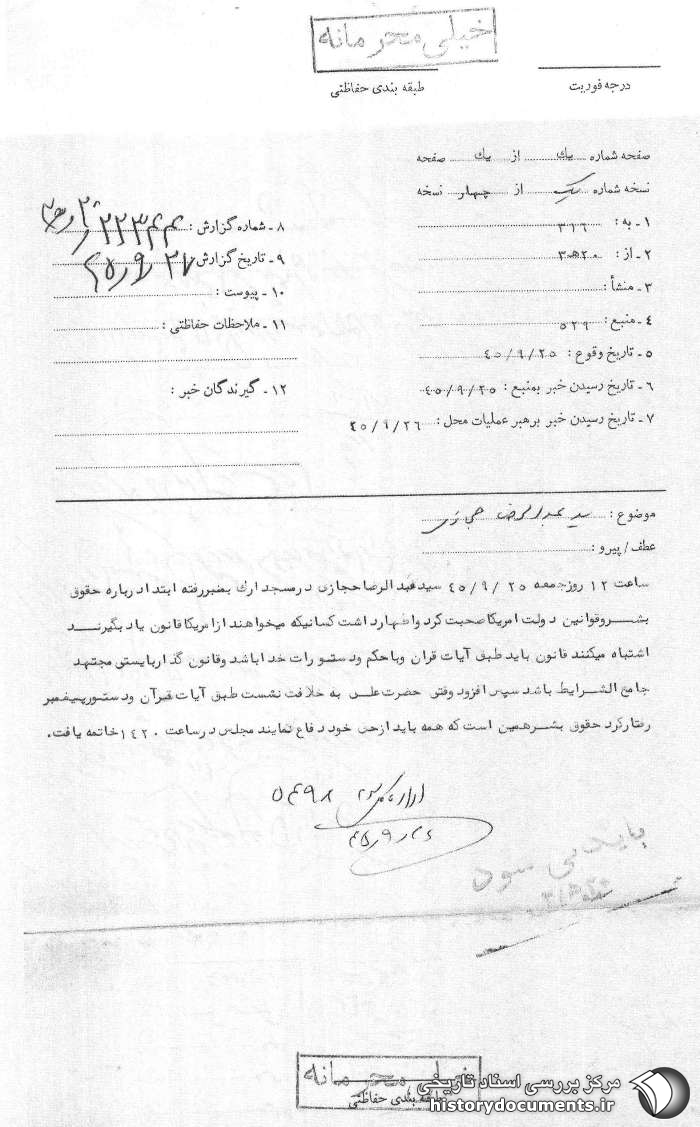 خیلی محرمانه
طبقه بندی حفاظتی
درجه فوریت
صفحه شماره یك از یك صفحه
نسخه شماره یک از چهار نسخه
۱ - به : ۳۱۶
۲ - از : ۲۰ھ۳
۳ - منشأ :
۴ - منبع : ۵۲۹
۵ - تاریخ وقوع : ۴۵/۹/۲۵
۶ - تاریخ رسیدن خبر بمنبع : ۴۵/۹/۲۵
۷ - تاریخ رسیدن خبر برهبر عملیات محل : ۴۵/۹/۲۶
۸ - شماره گزارش :
۹ - تاریخ گزارش ۴۵/۹/۲۷
۱۰ - پیوست :
۱۱ - ملاحظات حفاظتی :
۱۲ - گیرندگان خبر :
موضوع : سید عبدالرضا حجازی
عطف / پیرو :
ساعت ۱۲ روز جمعه ۲۵ /۹/ ۴۵ سید عبدالرضا حجازی در مسجد ارك بمنبر رفته ابتدا درباره حقوق
بشر و قوانین دولت امریکا صحبت کرد و اظهار داشت کسانیکه میخواهند از امریکا قانون یاد بگیرند
اشتباه میکنند قانون باید طبق آیات قران و با حکم و دستورات خدا باشد و قانون گذار بایستی مجتهد
جامع الشرایط باشد سپس افزود وقتی حضرت علی به خلافت نشست طبق آیات قرآن و دستور پیغمبر
رفتار کرد حقوق بشر همین است که همه باید از حق خود دفاع نمایند مجلس در ساعت ۱۴۲۰ خاتمه یافت.
۵۴۹۸
خیلی محرمانه
طبقه بندی حفاظتی
مرکز بررسی اسناد تاریخی
historydocuments.ir